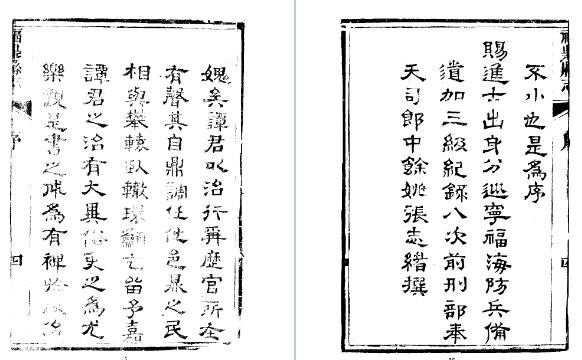 媿矣譚君以治行歷官所在
有聲其自鼎調任他邑鼎之民
相與攀轅臥轍環籲乞留予嘉
譚君之治有大異俗吏之為尤
樂觀是書之成為有裨於政治
福鼎縣志 序 四
福鼎縣志 序 四
不小也是為序
賜進士出身分巡寧福海防兵備
道加三級紀錄八次前刑部奉
天司郎中餘姚張志緒撰